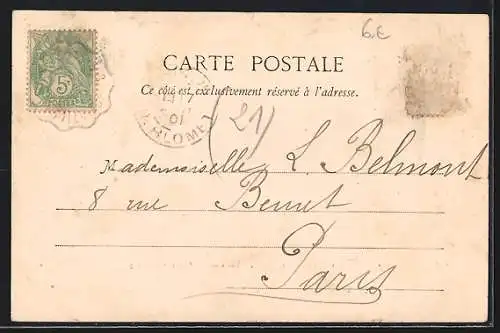 6€
CARTE POSTALE
Ce côté est exclusivement réservé à l'adresse.
5
01
(21)
Mademoiselle L. Belmont
8 rue
Paris